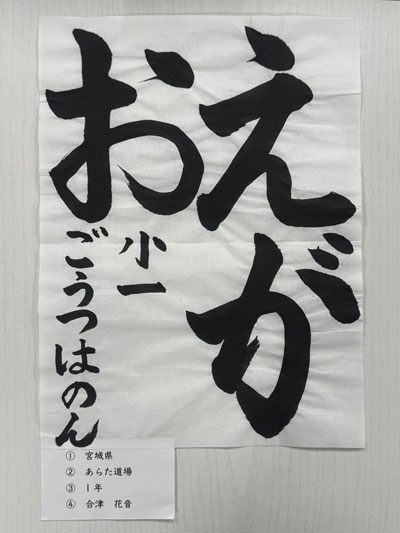 えが
お
小一
ごうつはのん
① 宮城県
② あらた道場
③ 1年
④ 合津 花音